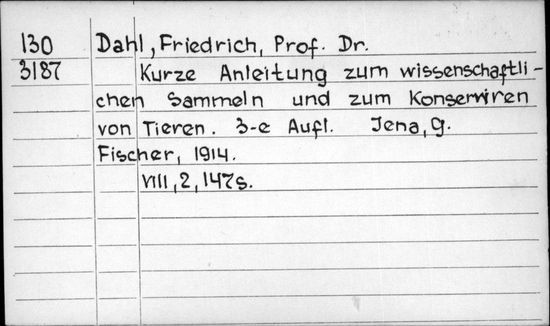 130 Dahl, Friedrich, Prof. Dr.
3187 Kurze Anleitung zum wissenschaftli-
chen Sammeln und zum Konserviren
von Tieren. 3-e Aufl. Jena, G.
Fischer, 1914.
VIII, 2, 147s.